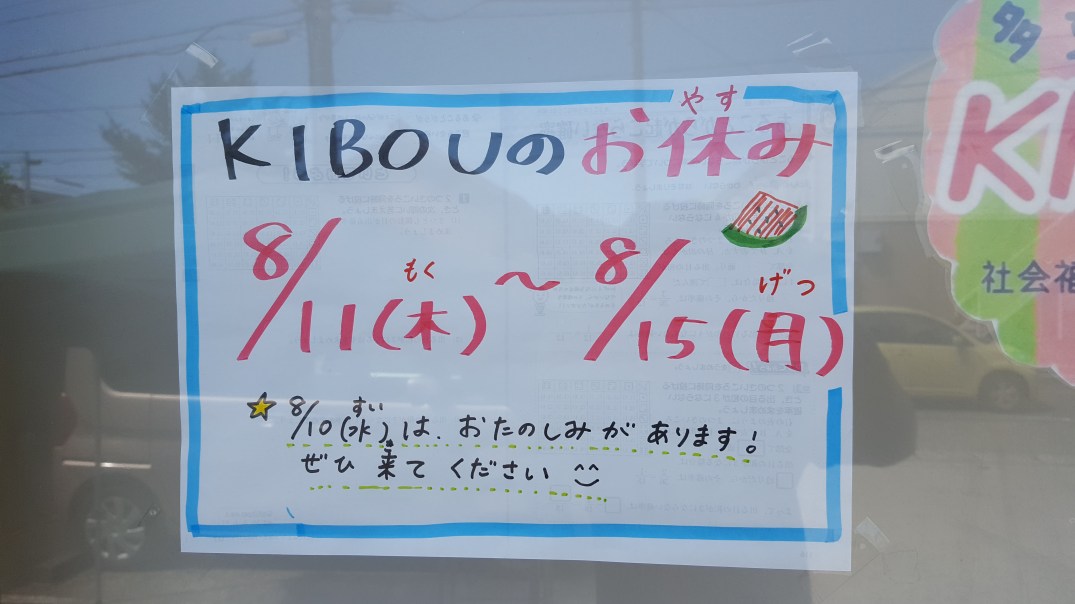 やす
KIBOUのお休み
もく げつ
8/11(木)～8/15(月)
すい
☆8/10(水)は、おたのしみがあります!
き
ぜひ来てください
多
KI
社会福